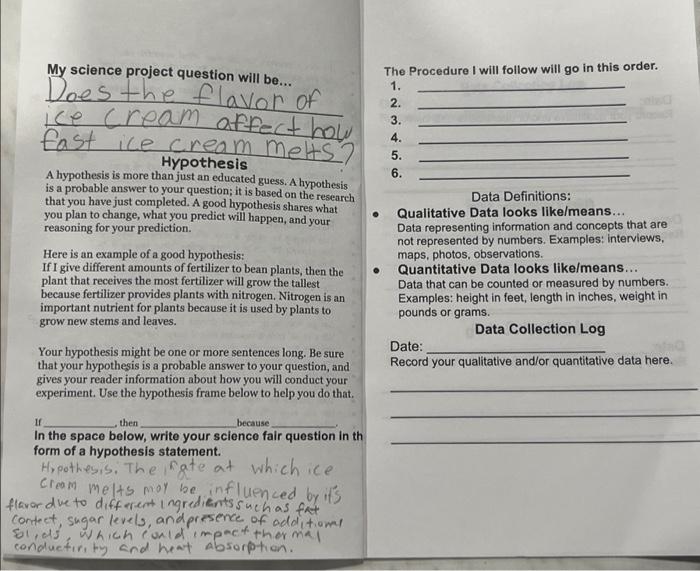 My science project question will be...
Does the flavor of
ice cream affect how
fast ice cream melts?
Hypothesis
A hypothesis is more than just an educated guess. A hypothesis
is a probable answer to your question; it is based on the research
that you have just completed. A good hypothesis shares what
you plan to change, what you predict will happen, and your
reasoning for your prediction.
Here is an example of a good hypothesis:
If I give different amounts of fertilizer to bean plants, then the
plant that receives the most fertilizer will grow the tallest
because fertilizer provides plants with nitrogen. Nitrogen is an
important nutrient for plants because it is used by plants to
grow new stems and leaves.
Your hypothesis might be one or more sentences long. Be sure
that your hypothesis is a probable answer to your question, and
gives your reader information about how you will conduct your
experiment. Use the hypothesis frame below to help you do that.
If , then because .
In the space below, write your science fair question in th
form of a hypothesis statement.
Hypothesis. The rate at which ice
cream melts may be influenced by it's
flavor due to different ingredients such as fat
content, sugar levels, and presence of additional
solids, which could impact thermal
conductivity and heat absorption.
The Procedure I will follow will go in this order.
1.
2.
3.
4.
5.
6.
Data Definitions:
• Qualitative Data looks like/means...
Data representing information and concepts that are
not represented by numbers. Examples: interviews,
maps, photos, observations.
• Quantitative Data looks like/means...
Data that can be counted or measured by numbers.
Examples: height in feet, length in inches, weight in
pounds or grams.
Data Collection Log
Date:
Record your qualitative and/or quantitative data here.